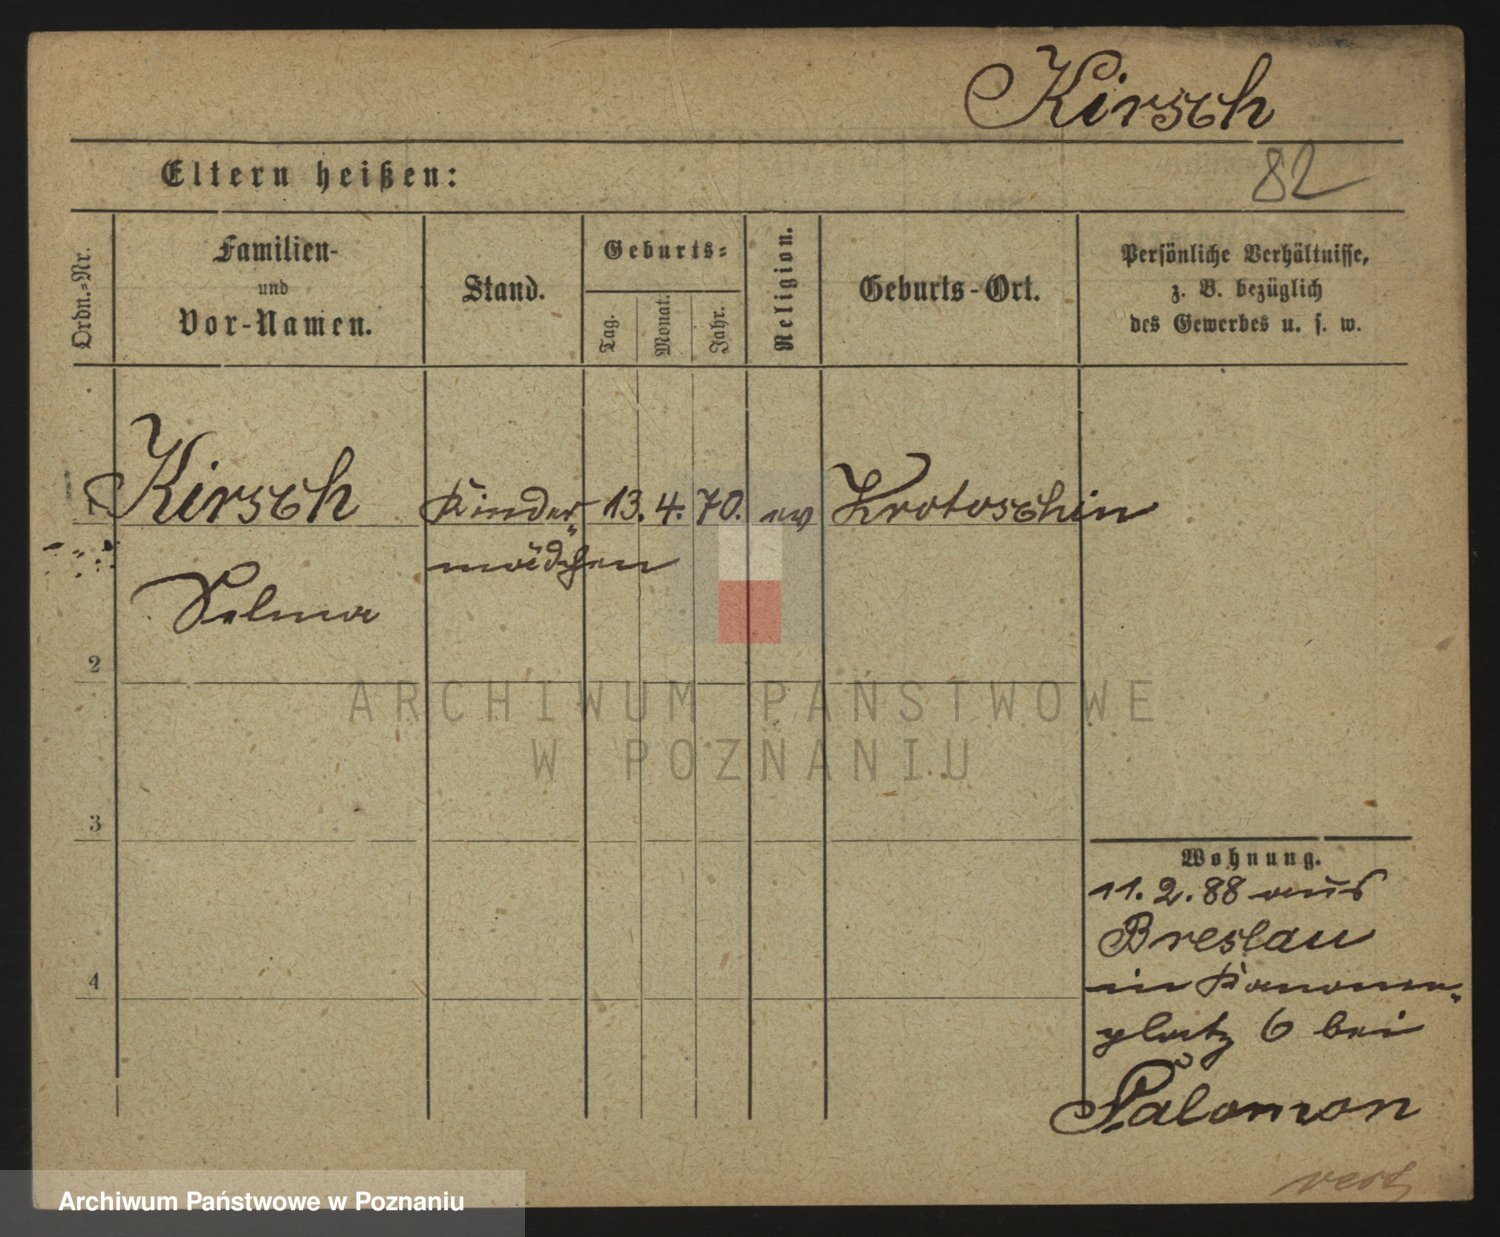 Kirsch
82
Eltern heißen:
Ordn.-Nr.
Familien-
und
Vor-Namen.
Stand.
Geburts-
Tag.
Monat.
Jahr.
Religion.
Geburts-Ort.
Persönliche Verhältnisse,
z. B. bezüglich
des Gewerbes u. s. w.
1 Kirsch Kinder- 13. 4. 70. ev Krotoschin
mädchen
Selma
2
3
4
ARCHIWUM PAŃSTWOWE
W POZNANIU
Wohnung.
11. 2. 88 aus
Breslau
in Kanonen-
platz 6 bei
Salomon
Archiwum Państwowe w Poznaniu